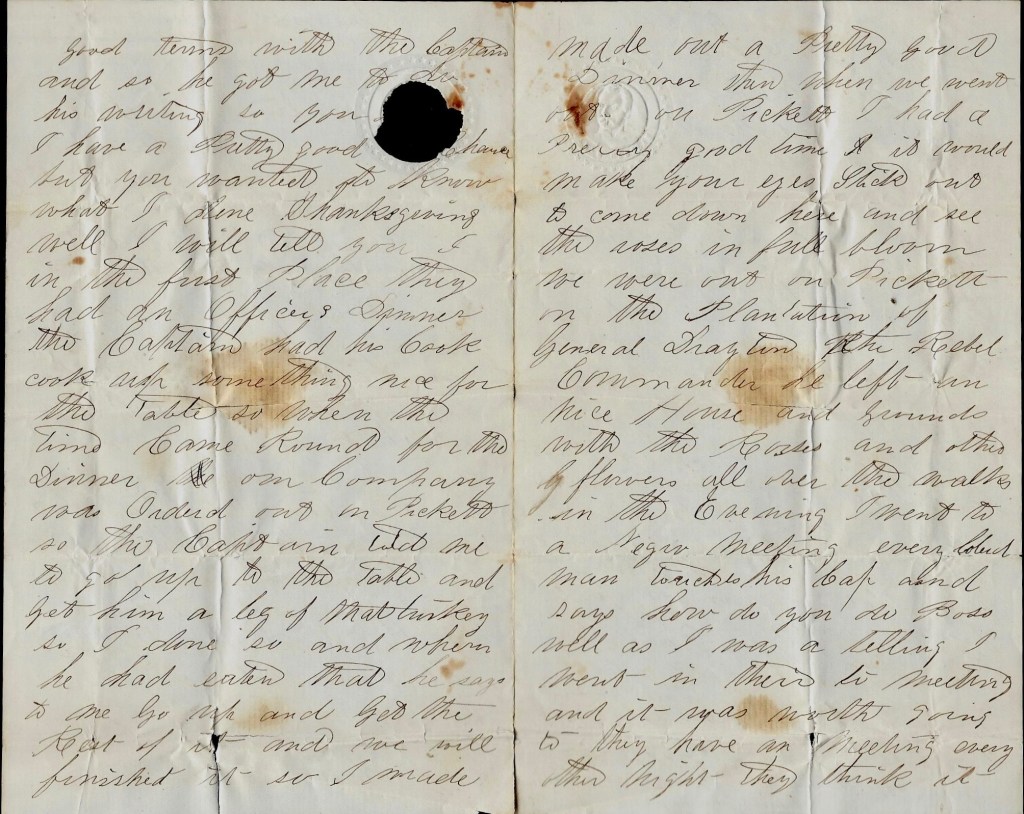 good terms with the Captain
and so he got me to do
his writing so you
I have a Pretty good chance
but you wanted to know
what I done Thanksgiving
well I will tell you I
in the first Place they
had an Officers Dinner
the Captain had his Cook
cook up something nice for
the Table so when the
time Came Round for the
Dinner our Company
was Orderd out on Pickett
so the Captain told me
to go up to the Table and
get him a leg of that turkey
so I done so and when
he had eaten that he says
to me Go up and Get the
Rest of it and we will
finished it so I made
made out a Pretty Good
Dinner then when we went
out on Pickett I had a
Pretty good time it would
make your eyes Stick out
to come down here and see
the roses in full bloom
we were out on Pickett
on the Plantation of
General Drayton the Rebel
Commander he left an
nice House and Grounds
with the Roses and other
flowers all over the walks
in the Evening I went to
a Negro Meeting every Colord
man touches his Cap and
says how do you do Boss
well as I was a telling I
went in their to meeting
and it was worth going
to they have an Meeting every
other Night they think it